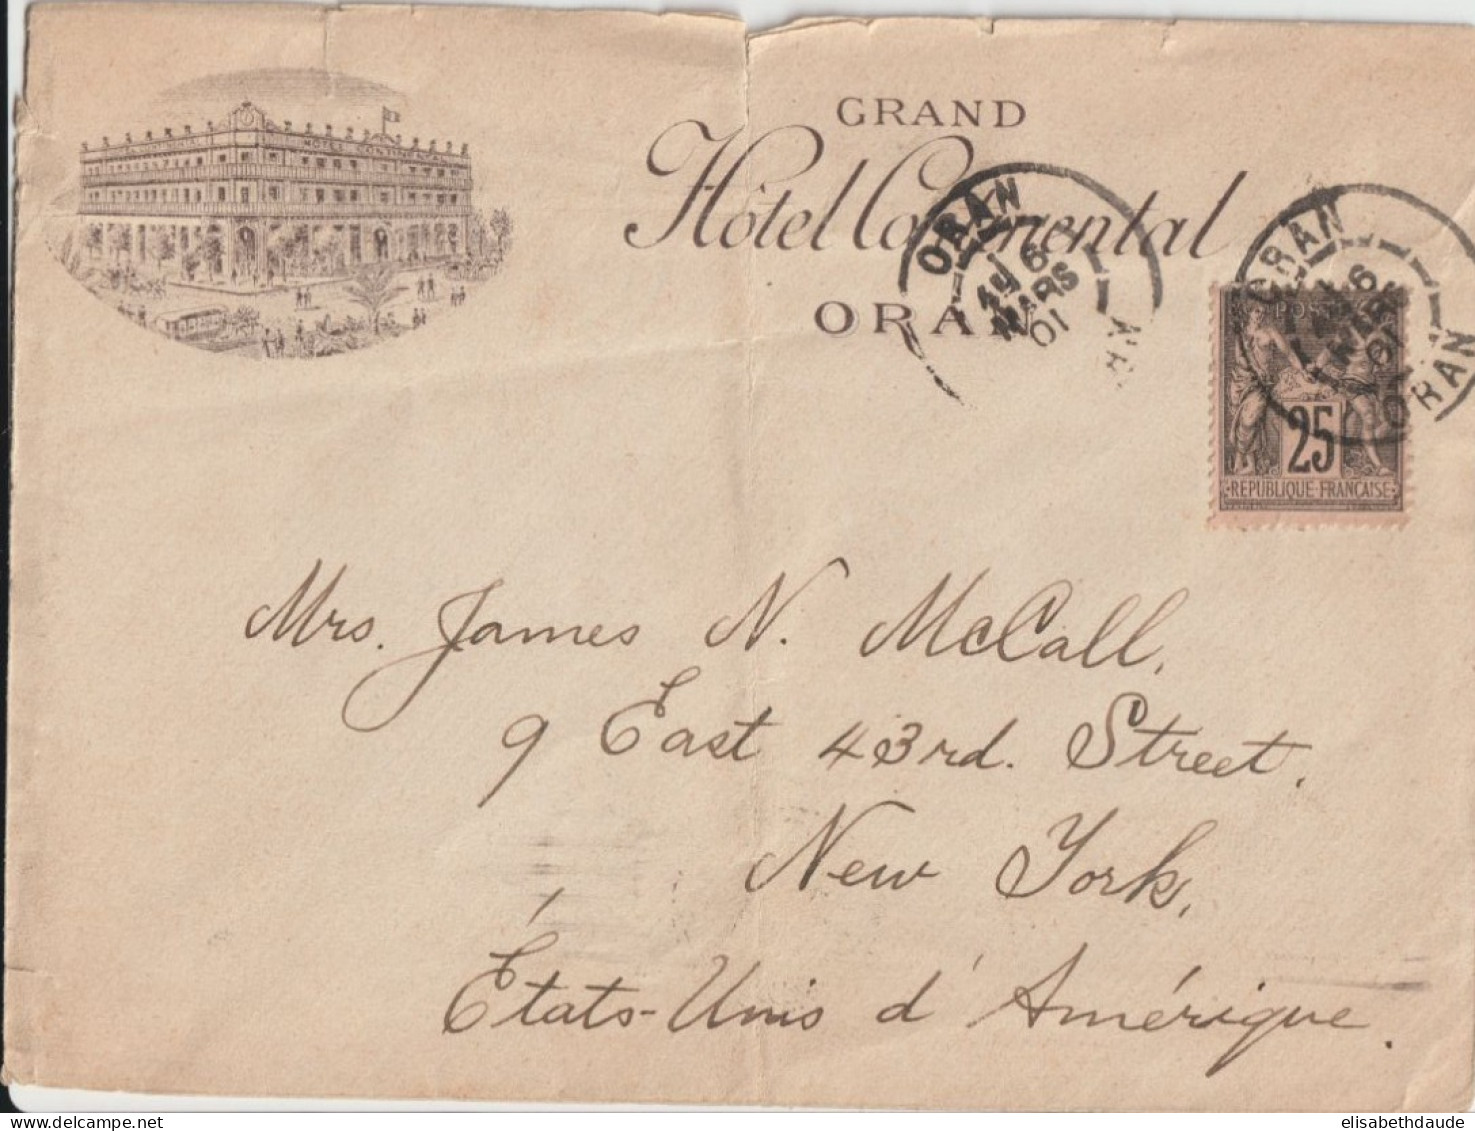 GRAND
Hôtel Continental
ORAN
HOTEL CONTINENTAL
ORAN
6
MARS
01
ORAN
6
MARS
01
ORAN
POSTES
25
REPUBLIQUE FRANCAISE
Mrs. James N. McCall,
9 East 43rd. Street,
New York,
États-Unis d'Amérique.
elisabethdaude